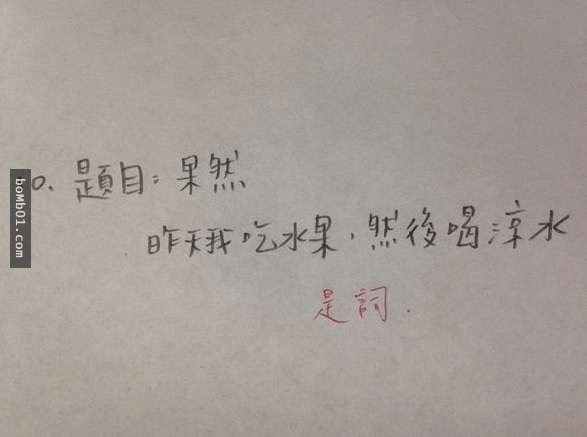 0. 題目：果然
昨天我吃水果，然後喝涼水
是詞.
boMb01.com